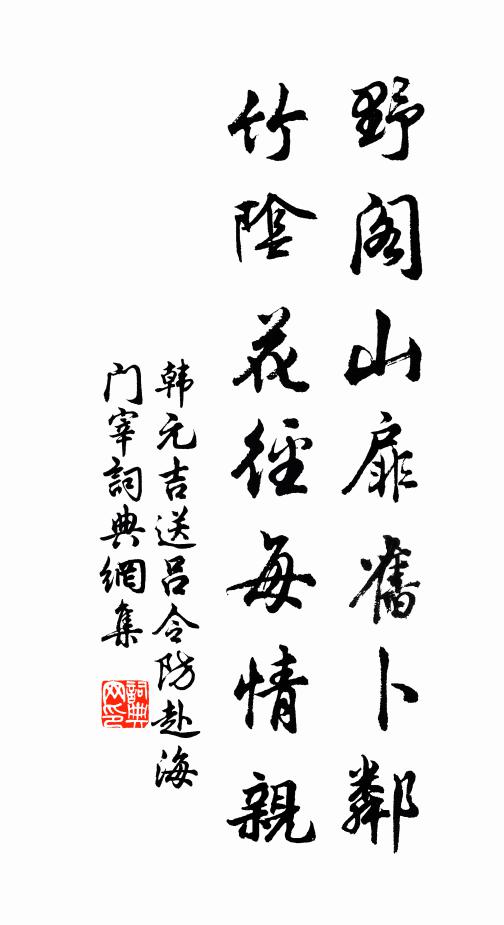 野阁山扉舊卜鄰
竹陰花徑每情親
韩元吉送吕令防赴海
门宰詞典網集
詞典网印